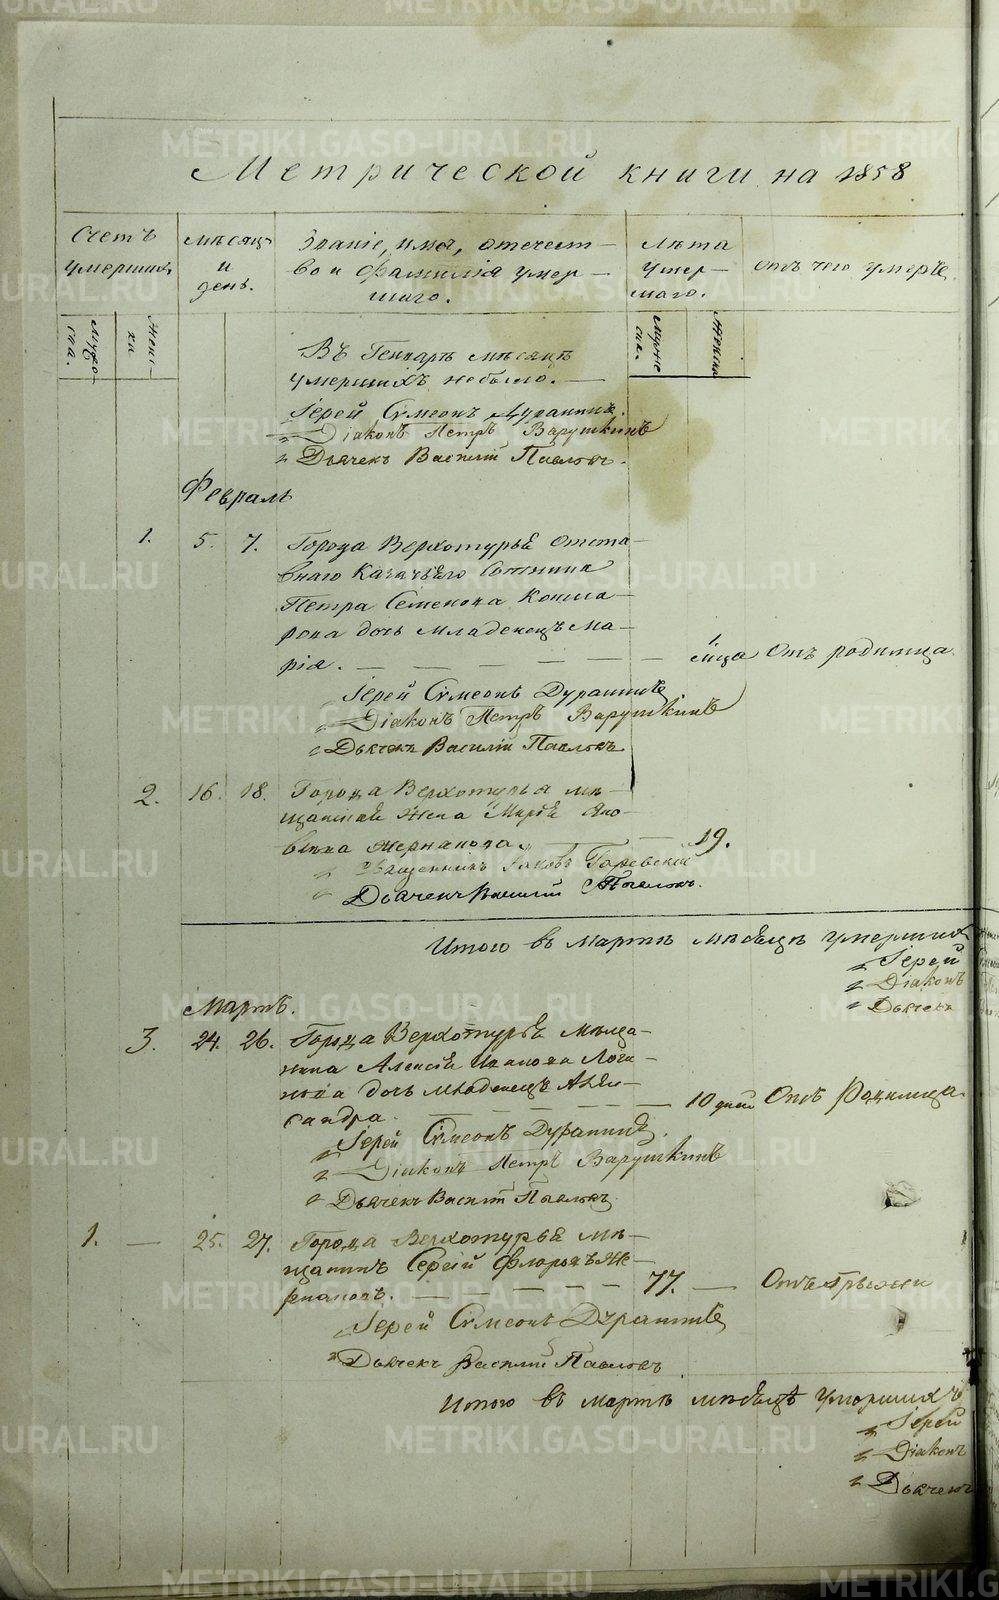 Метрической книги на 1858
Счетъ умершихъ
мѣсяцъ и день.
Званіе, имя, отечест-
во и фамилія умер-
шаго.
Лѣта умер-
шаго.
отъ чего умеръ
Мужес-
ка.
Женс-
ки
Въ Генварѣ мѣсяцѣ
умершихъ небыло.
Іерей Сѵмеонъ
Діаконъ Петръ Варушкинъ
Дьячекъ Василій Павловъ.
Февраль
1. 5. 7. Города Верхотурья отста-
внаго Казачьего Сотника
Петра Семенова
дочь младенецъ Ма-
рія. 1 мца Отъ родимца
Іерей Сѵмеонъ
Діаконъ Петръ Варушкинъ
Дьячекъ Василій Павловъ
2. 16. 18. Города Верхотурья мѣ-
щанская Жена Марѳа Яко-
влева 19.
Священникъ Іаковъ
Дьячекъ Василій Павловъ.
Итого въ Мартѣ мѣсяцѣ умершихъ
Іерей
Діаконъ
Дьячекъ
Мартъ.
3. 24. 26. Города Верхотурья Мѣща-
нина Алексѣя Иванова Логи-
нова дочь младенецъ Алек-
сандра. 10 дней Отъ Родимца.
Іерей Сѵмеонъ
Діаконъ Петръ Варушкинъ
Дьячекъ Василій Павловъ.
1. 25. 27. Города Верхотурья мѣ-
щанинъ Сергій Флоровъ
77. Отъ грыжи
Іерей Сѵмеонъ
Дьячекъ Василій Павловъ
Итого въ мартѣ мѣсяцѣ умершихъ
Іерей
Діаконъ
Дьячекъ
METRIKI.GASO-URAL.RU